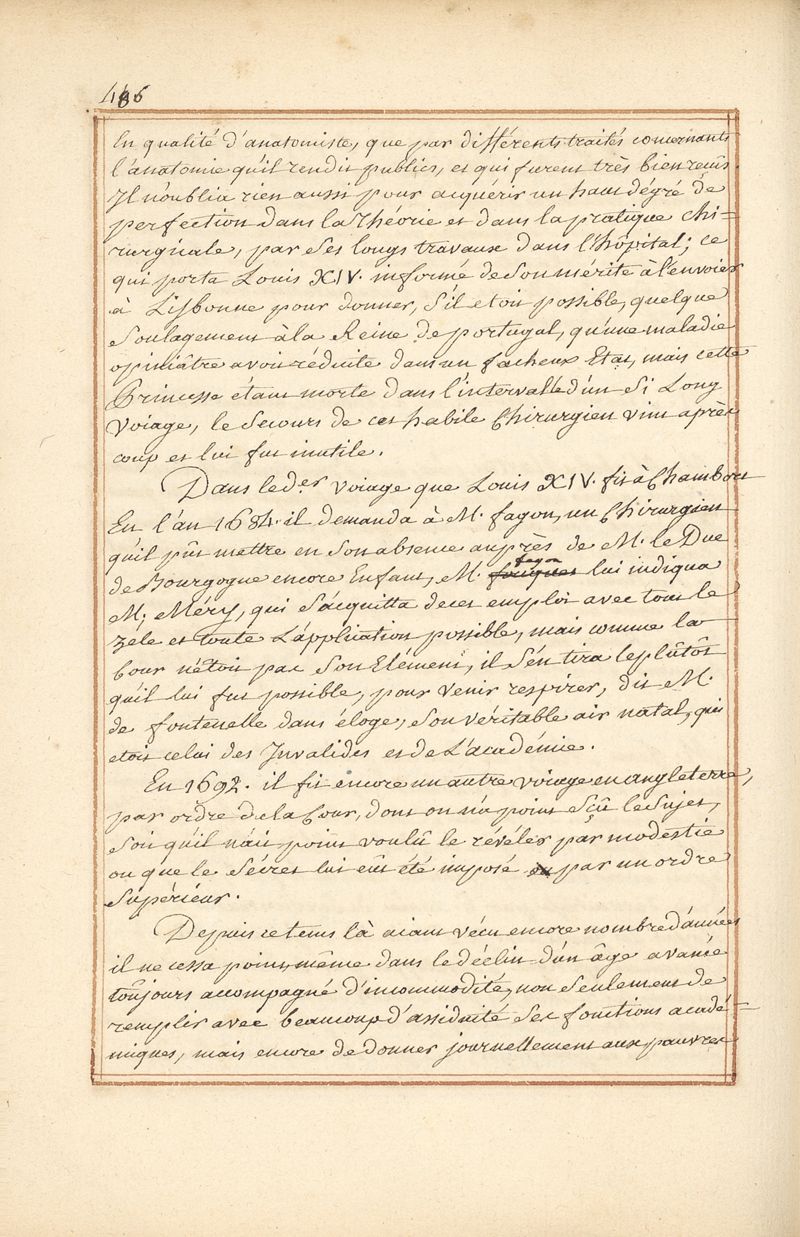 486
En qualité d'anatomiste, que par différents traités concernants
l'anatomie qu'il rendit publics, et qui furent très bien reçûs.
Il n'oublia rien aussi pour acquérir un haut dégré de
perfection dans la Théorie et dans la pratique chi=
rurgicale, par ses longs travaux dans l'hôpital; ce
qui porta Louis XIV. informé de son mérite à l'envoier
à Lisbonne pour donner, s'il etoit possible, quelque
soulagement à la Reine de portugal, qu'une maladie
opiniâtre avoit réduite dans un facheux Etat, mais cette
Princesse étant morte dans l'intervalle d'un si Long
voiage, le secours de cet habile Chirurgien vint après
coup et lui fut inutile.
Dans le d.er voiage que Louis XIV. fit à Chambort
En l'an 1684. il demanda à M. fagon, un Chirurgien
qu'il pût mettre en son absence auprès de M. le Duc
de Bourgogne encore Enfant, M. fagon lui indiqua
M. Méry, qui s'acquitta de cet emploi avec tout le
zele et toute L'application possible, mais comme la
Cour n'étoit pas son Elément, il s'en tira le plûtôt
qu'il lui fut possible, pour venir respirer, dit M.
de fontenelle dans éloge, son véritable air natal, qui
etoit celui des Invalides et de L'académie.
En 1692. il fit encore un autre voiage en angleterre,
par ordre de la Cour, dont on n'a point sçû le sujet,
soit qu'il n'ait point voulû le révéler par modestie
ou que le sécret lui eût été imposé par un ordre
supérieur.
Depuis ce tems là aiant vécu encore nombre d'années
il ne cessa point, même dans le déclin d'un âge avancé
toûjours accompagné d'incommodité, non seulement de
remplir avec beaucoup d'assiduité ses fonctions acadé=
miques, mais encore de donner journellement aux pauvres